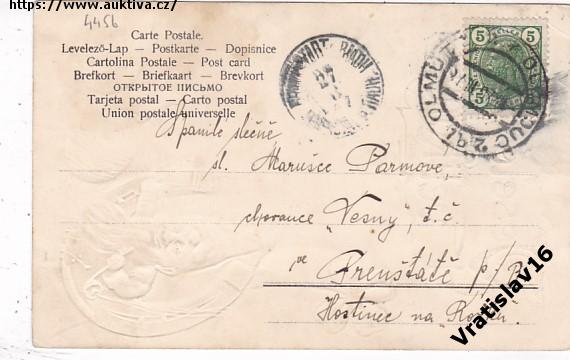 https://www.auktiva.cz/
4456
Carte Postale.
Levelező-Lap — Postkarte — Dopisnice
Cartolina Postale — Post card
Brefkort — Briefkaart — Brevkort
ОТКРЫТОЕ ПИСЬМО
Tarjeta postal — Carto postal
Union postale universelle
27
5 5
OLMÜTZ
OLOMOUC 2
Spanilé slečně
sl. Marušce Parmove,
chovance „Vesny", t. č.
ve
Frenštátě p/R
Hostinec na
Vratislav16